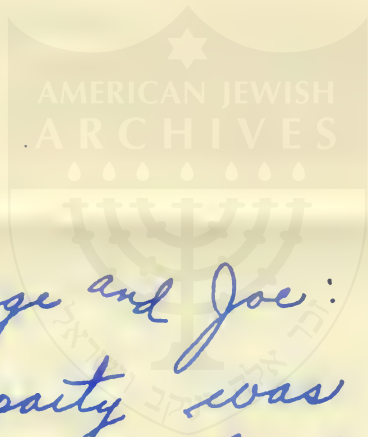 AMERICAN JEWISH
ARCHIVES
ge and Joe:
party was